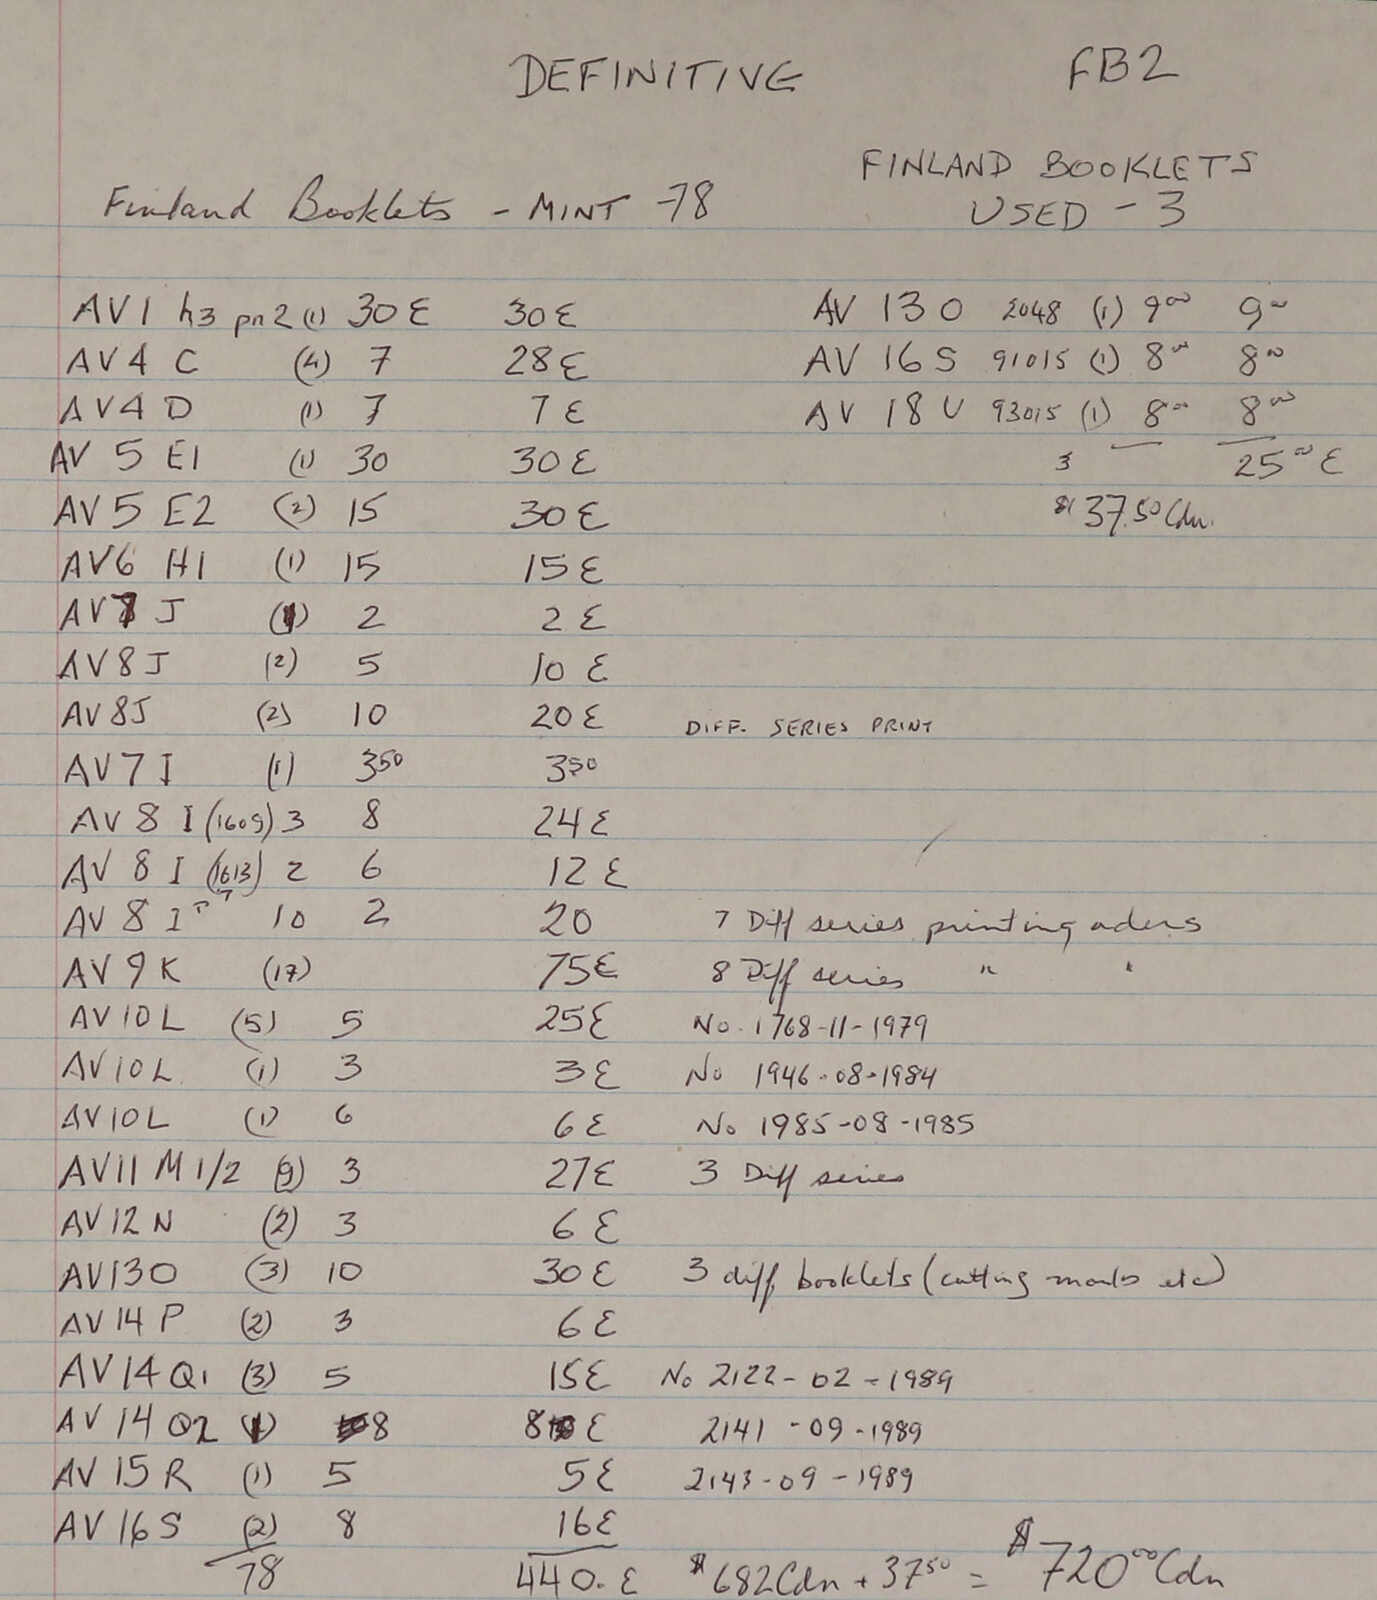 DEFINITIVE FB2
FINLAND BOOKLETS
USED - 3
Finland Booklets - MINT -78
AV1 h3 pn2 (1) 30 € 30 €
AV4 C (4) 7 28 €
AV4 D (1) 7 7 €
AV 5 E1 (1) 30 30 €
AV 5 E2 (2) 15 30 €
AV6 H1 (1) 15 15 €
AV7 J (1) 2 2 €
AV8J (2) 5 10 €
AV8J (2) 10 20 € DIFF. SERIES PRINT
AV 7 I (1) 3 50 3 50
AV 8 I (1609) 3 8 24 €
AV 8 I (1613) 2 6 12 €
AV 8 I 10 2 20 7 Diff series printing orders
AV 9 K (17) 75 € 8 Diff series " "
AV 10 L (5) 5 25 € No. 1768-11-1979
AV 10 L (1) 3 3 € No 1946-08-1984
AV 10 L (1) 6 6 € No 1985-08-1985
AV11 M 1/2 (9) 3 27 € 3 Diff series
AV 12 N (2) 3 6 €
AV130 (3) 10 30 € 3 diff booklets (cutting marks etc)
AV 14 P (2) 3 6 €
AV 14 Q1 (3) 5 15 € No 2122-02-1989
AV 14 Q2 (1) 8 8 € 2141-09-1989
AV 15 R (1) 5 5 € 2143-09-1989
AV 16 S (2) 8 16 €
78 440. € $682 Cdn + 37 50 = $720 00 Cdn
AV 13 O 2048 (1) 9 00 9 00
AV 16 S 91015 (1) 8 00 8 00
AV 18 U 93015 (1) 8 00 8 00
3 25 00 €
$37.50 Cdn.